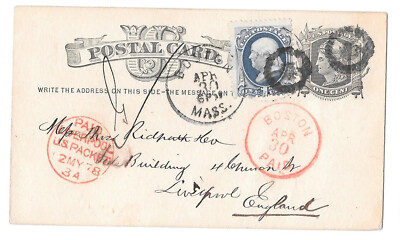 US
POSTAL CARD
WRITE THE ADDRESS ON THIS SIDE-THE MESSAGE
BOSTON
APR
30
6PM
MASS.
ONE CENT
PAID
LIVERPOOL
US PACKET
2 MY 78
3A
BOSTON
APR
30
PAID
Mess
Bros
Building 4
St
Liverpool
England